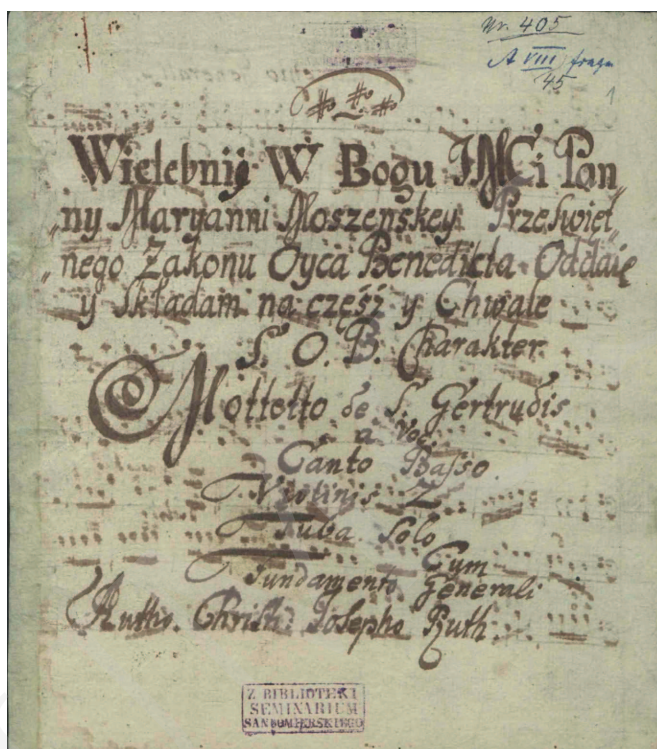 Nr. 405
A VIII fragm
45
1
Wielebnij W Bogu JMCi Pan„
„ny Maryanni Moszenskey Przeświet„
„nego Zakonu Oyca Benedicta Oddaię
y Składam na część y Chwale
S. O. B. Charakter
Mottetto de S. Gertrudis
a Voc.
Canto Basso.
Violinis 2
Tuba Solo
Cum
Fundamento Generali
Autho. Christi: Josepho Ruth.
Z BIBLIOTEKI
SEMINARIUM
SANDOMIERSKIEGO